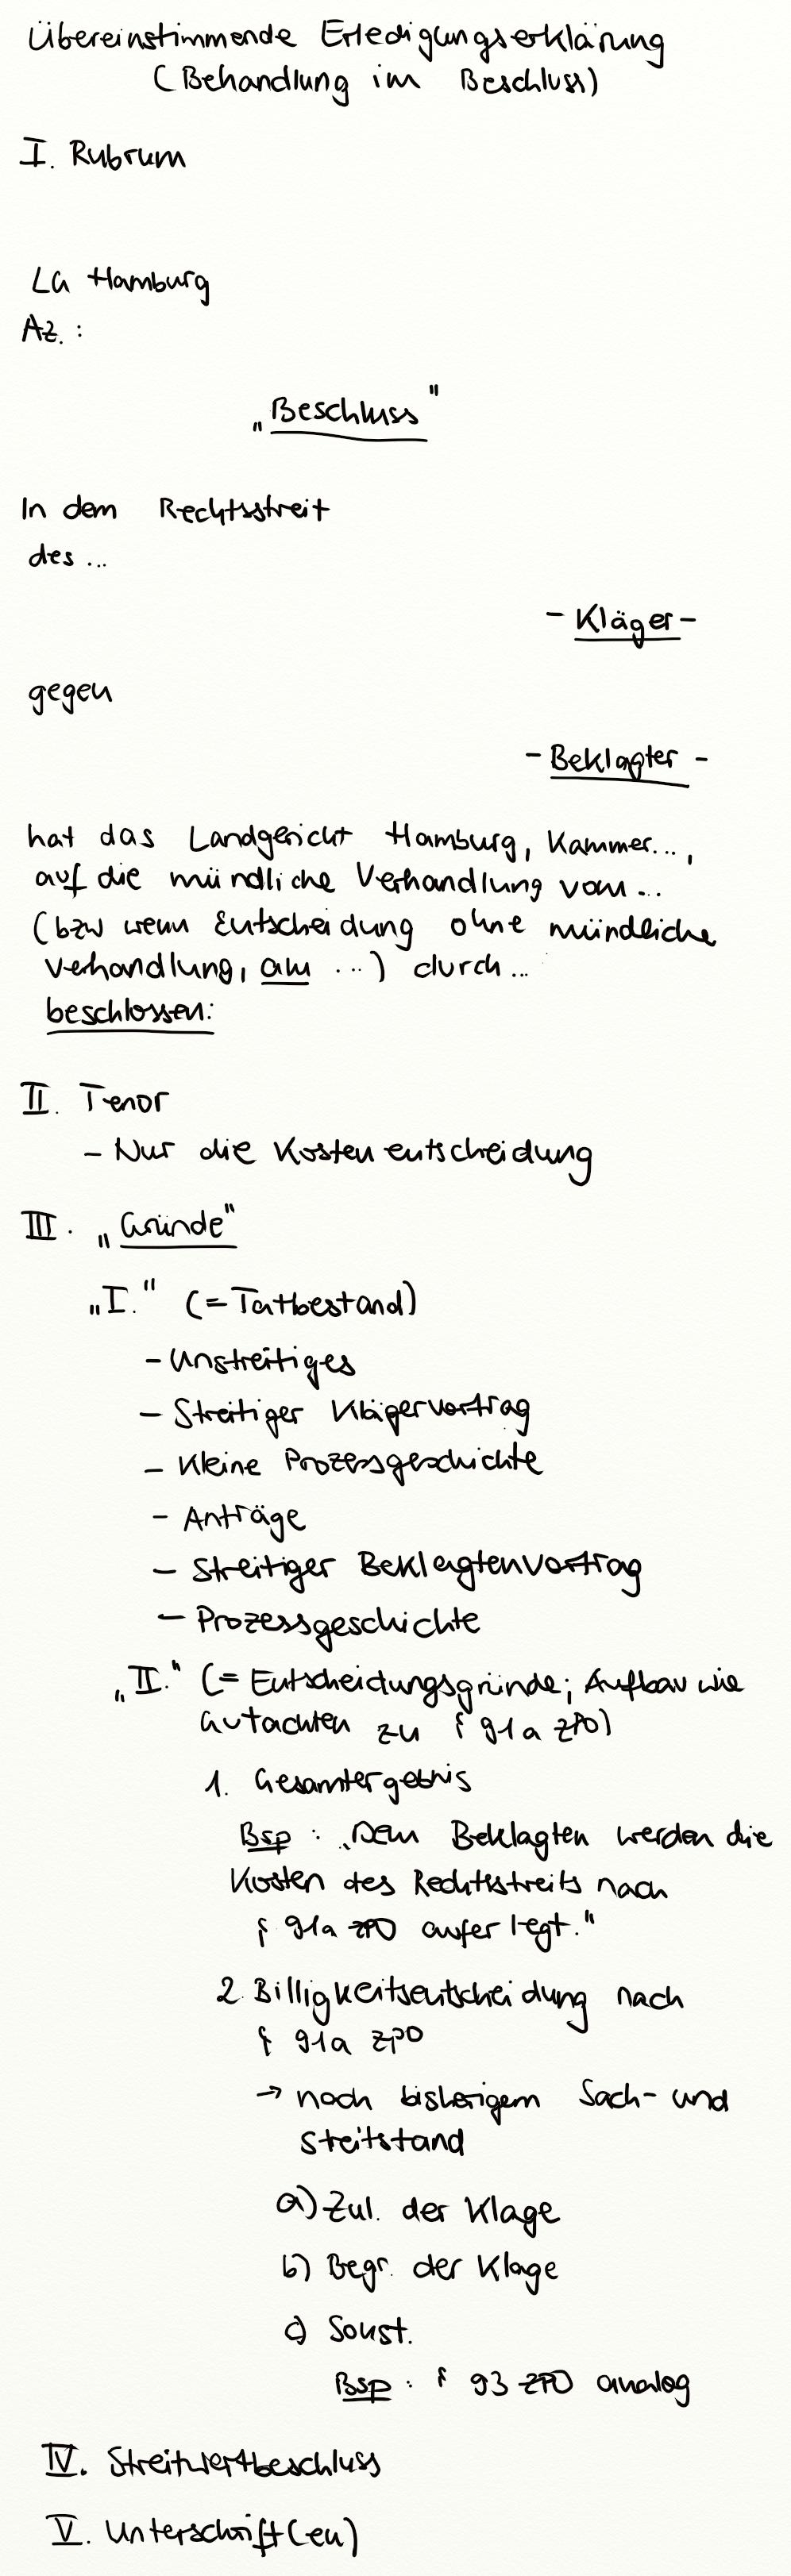 Übereinstimmende Erledigungserklärung
(Behandlung im Beschluss)
I. Rubrum
LG Hamburg
Az. :
„Beschluss"
In dem Rechtsstreit
des ...
- Kläger -
gegen
- Beklagter -
hat das Landgericht Hamburg, Kammer...,
auf die mündliche Verhandlung vom ...
(bzw wenn Entscheidung ohne mündliche
Verhandlung, am ...) durch ...
beschlossen:
II. Tenor
- Nur die Kostenentscheidung
III. „Gründe"
„I." (= Tatbestand)
- Unstreitiges
- Streitiger Klägervortrag
- Kleine Prozessgeschichte
- Anträge
- Streitiger Beklagtenvortrag
- Prozessgeschichte
„II." (= Entscheidungsgründe; Aufbau wie
Gutachten zu § 91a ZPO)
1. Gesamtergebnis
Bsp : „Dem Beklagten werden die
Kosten des Rechtsstreits nach
§ 91a ZPO auferlegt."
2. Billigkeitsentscheidung nach
§ 91a ZPO
→ nach bisherigem Sach- und
Streitstand
a) Zul. der Klage
b) Begr. der Klage
c) Sonst.
Bsp : § 93 ZPO analog
IV. Streitwertbeschluss
V. Unterschrift(en)